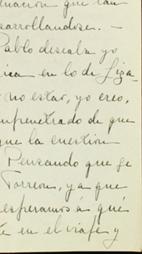 nación que tan
sarrollandose. -
Pablo deseaba yo
rica en lo de Liza
no estar, yo creo,
mpenetrado de que
que la cuestión
Pensando que Je
Torreon, ya que
esperamos á qué
te en el viaje y